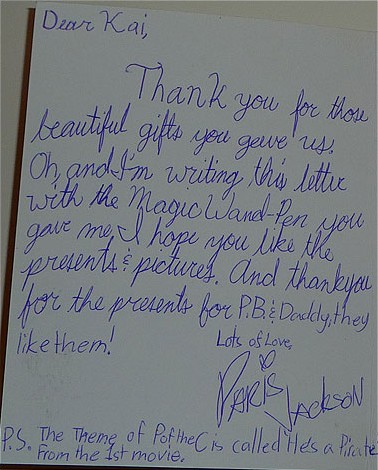 Dear Kai,
Thank you for those
beautiful gifts you gave us.
Oh, and I'm writing this letter
with the Magic Wand-Pen you
gave me, I hope you like the
presents & pictures. And thankyou
for the presents for P.B. & Daddy, they
like them!
Lots of Love,
Paris Jackson
P.S. The Theme of PoftheC is called He's a Pirate
From the 1st movie.